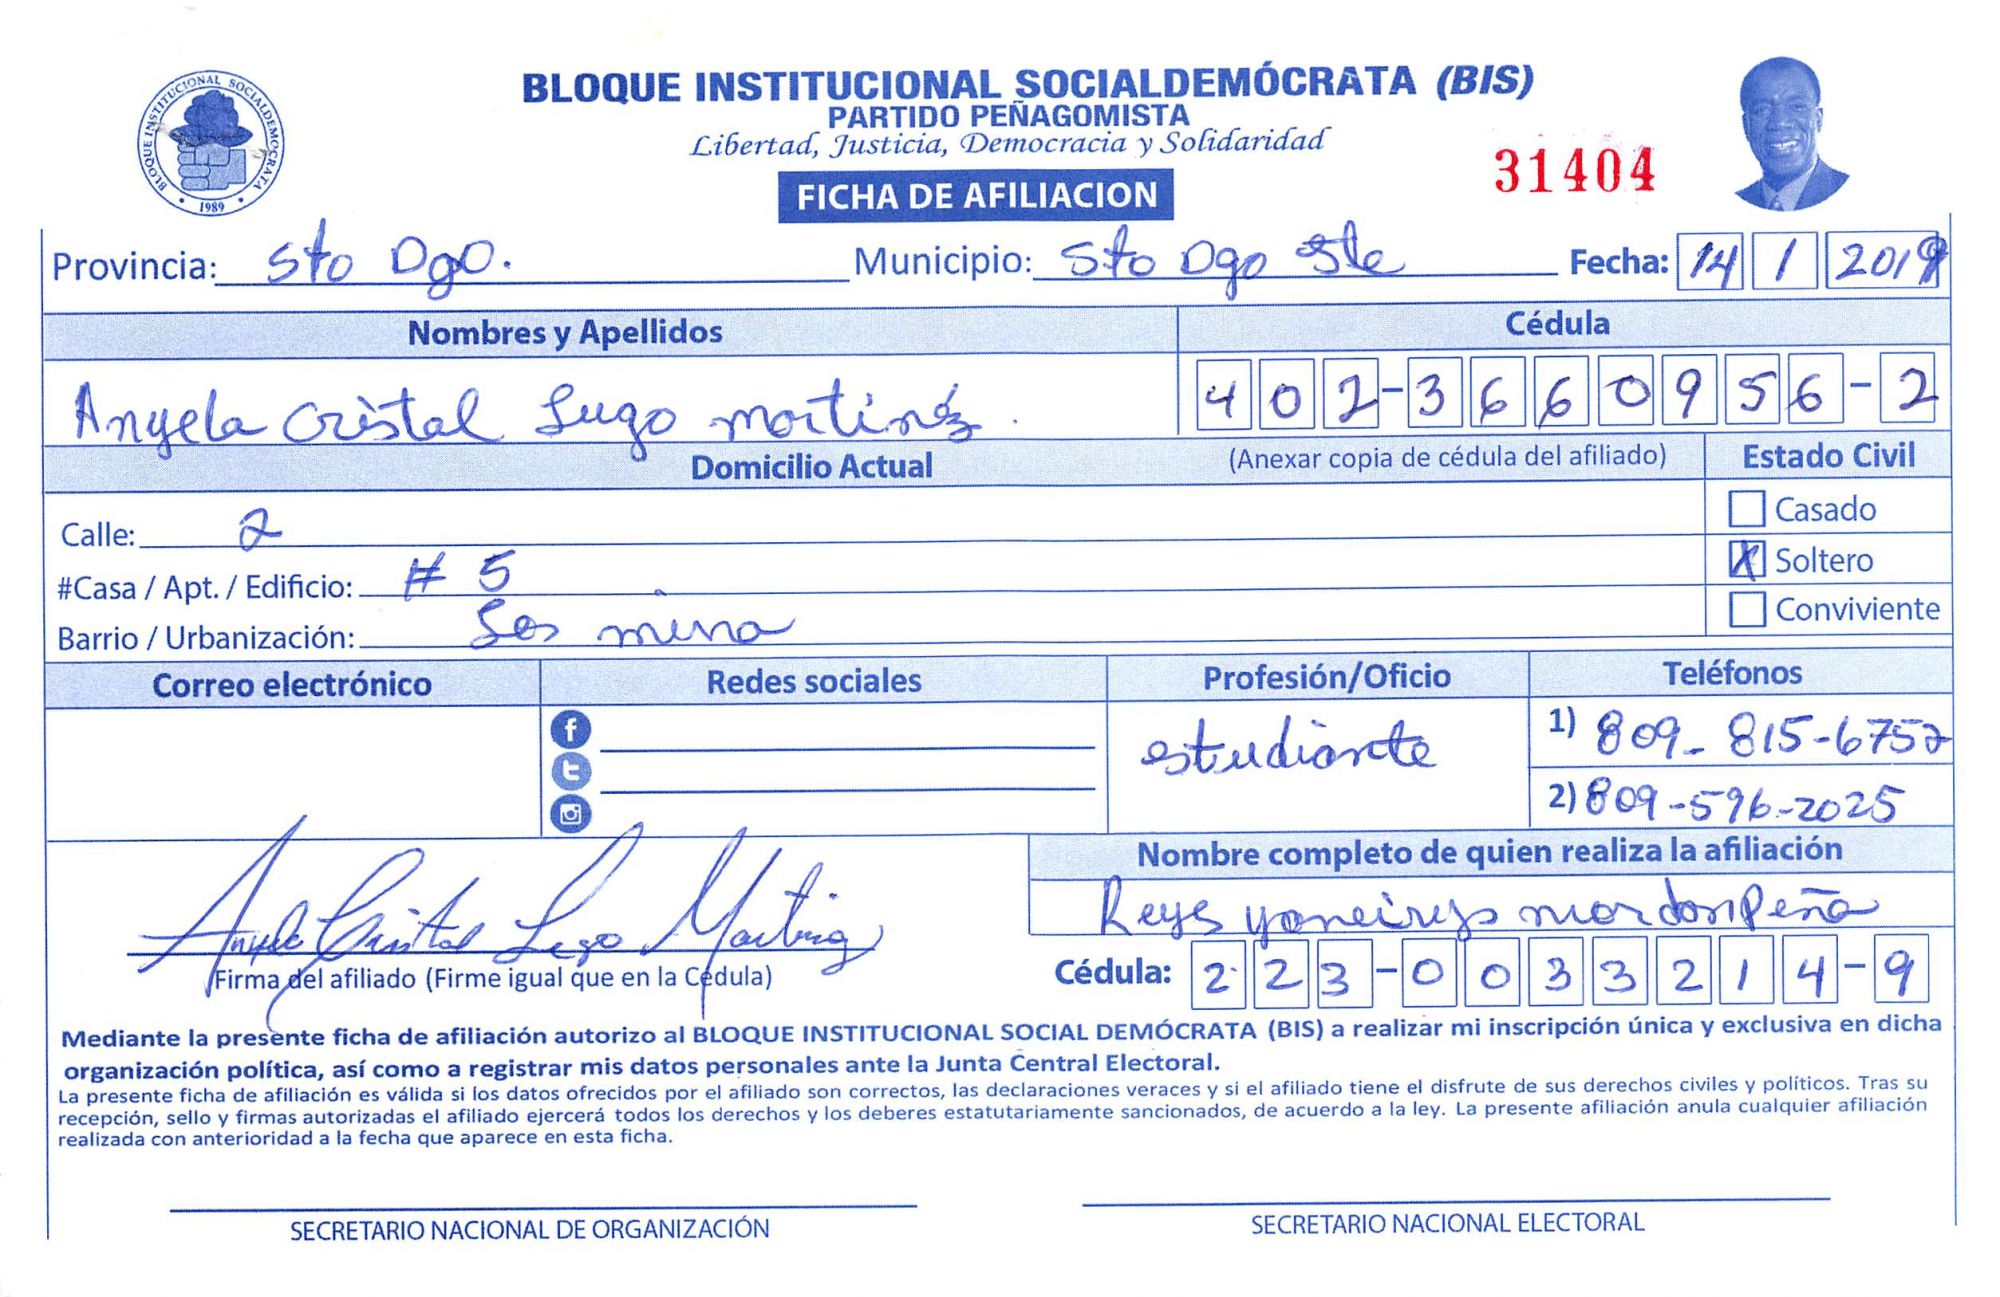 BLOQUE INSTITUCIONAL SOCIALDEMÓCRATA (BIS)
PARTIDO PEÑAGOMISTA
Libertad, Justicia, Democracia y Solidaridad
BLOQUE INSTITUCIONAL SOCIALDEMOCRATA
1989
31404
FICHA DE AFILIACION
Provincia: Sto Dgo. Municipio: Sto Dgo Ste Fecha: 14 1 2019
Nombres y Apellidos Cédula
Angela Cristal Lugo martinez. 402-3660956-2
Domicilio Actual (Anexar copia de cédula del afiliado) Estado Civil
Calle: 2 Casado
#Casa / Apt. / Edificio: # 5 X Soltero
Barrio / Urbanización: Los mina Conviviente
Correo electrónico Redes sociales Profesión/Oficio Teléfonos
estudiante 1) 809-815-6752
2) 809-596-2025
Nombre completo de quien realiza la afiliación
Reyes yaneirys mordan Peña
Angela Cristal Lugo Martinez
Firma del afiliado (Firme igual que en la Cédula) Cédula: 223-0033214-9
Mediante la presente ficha de afiliación autorizo al BLOQUE INSTITUCIONAL SOCIAL DEMÓCRATA (BIS) a realizar mi inscripción única y exclusiva en dicha
organización política, así como a registrar mis datos personales ante la Junta Central Electoral.
La presente ficha de afiliación es válida si los datos ofrecidos por el afiliado son correctos, las declaraciones veraces y si el afiliado tiene el disfrute de sus derechos civiles y políticos. Tras su
recepción, sello y firmas autorizadas el afiliado ejercerá todos los derechos y los deberes estatutariamente sancionados, de acuerdo a la ley. La presente afiliación anula cualquier afiliación
realizada con anterioridad a la fecha que aparece en esta ficha.
SECRETARIO NACIONAL DE ORGANIZACIÓN SECRETARIO NACIONAL ELECTORAL